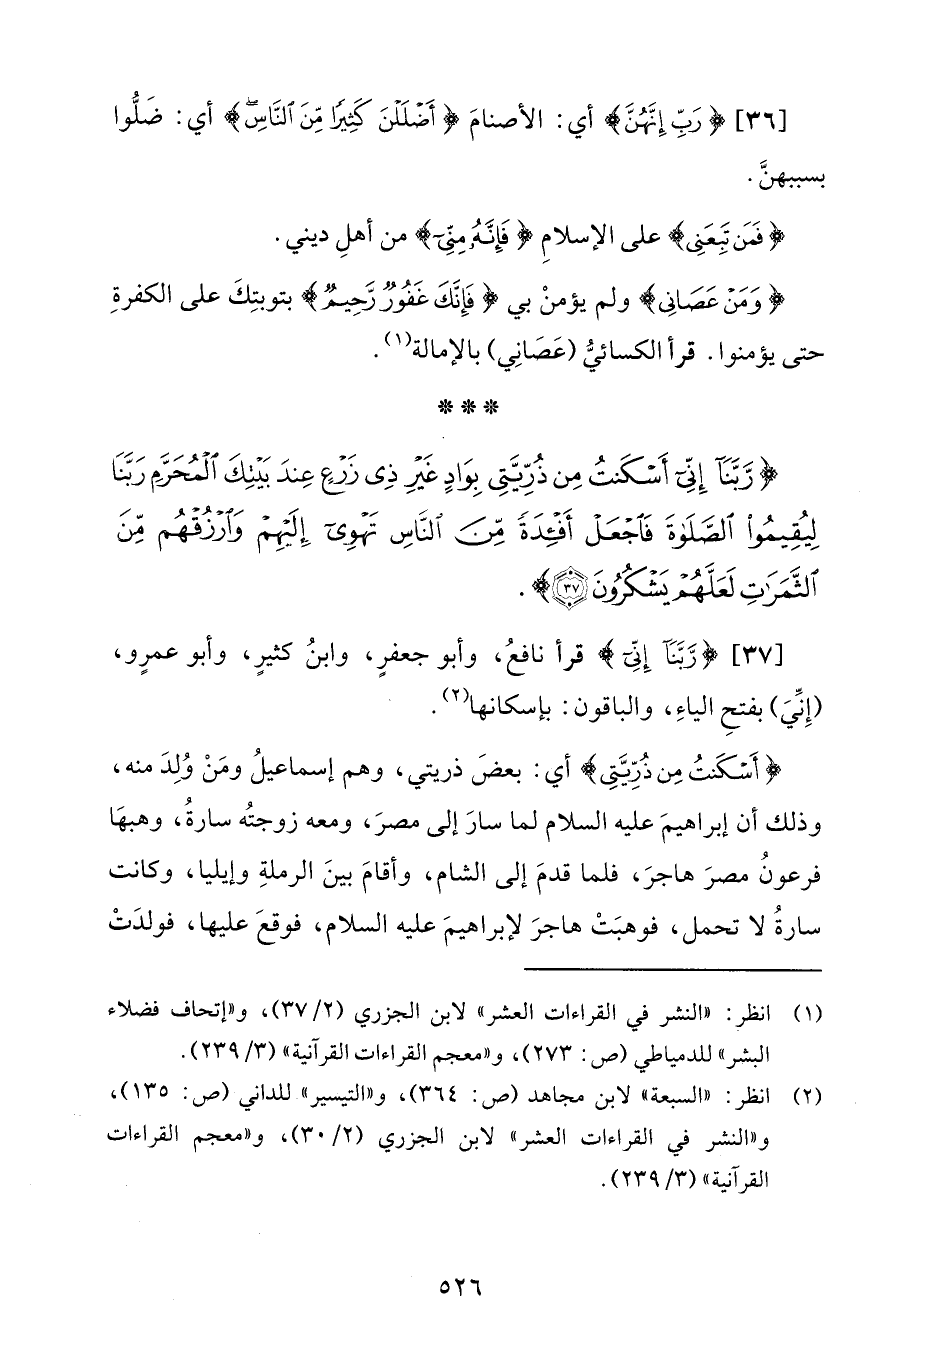 [٣٦] ﴿رَبِّ إِنَّهُنَّ﴾ أي: الأصنامَ ﴿أَضْلَلْنَ كَثِيرًا مِّنَ ٱلنَّاسِۖ﴾ أي: ضَلُّوا
بسببهنَّ.
﴿فَمَن تَبِعَنِى﴾ على الإسلامِ ﴿فَإِنَّهُۥ مِنِّىۖ﴾ من أهلِ ديني.
﴿وَمَنْ عَصَانِى﴾ ولم يؤمنْ بي ﴿فَإِنَّكَ غَفُورٌ رَّحِيمٌ﴾ بتوبتِكَ على الكفرةِ
حتى يؤمنوا. قرأ الكسائيُّ (عَصَانِي) بالإمالة(١).
* * *
﴿رَّبَّنَآ إِنِّىٓ أَسْكَنتُ مِن ذُرِّيَّتِى بِوَادٍ غَيْرِ ذِى زَرْعٍ عِندَ بَيْتِكَ ٱلْمُحَرَّمِ رَبَّنَا
لِيُقِيمُوا۟ ٱلصَّلَوٰةَ فَٱجْعَلْ أَفْـِٔدَةً مِّنَ ٱلنَّاسِ تَهْوِىٓ إِلَيْهِمْ وَٱرْزُقْهُم مِّنَ
ٱلثَّمَرَٰتِ لَعَلَّهُمْ يَشْكُرُونَ ٣٧﴾.
[٣٧] ﴿رَّبَّنَآ إِنِّىٓ﴾ قرأ نافعُ، وأبو جعفرٍ، وابنُ كثيرٍ، وأبو عمرٍو،
(إِنِّيَ) بفتحِ الياءِ، والباقون: بإسكانها(٢).
﴿أَسْكَنتُ مِن ذُرِّيَّتِى﴾ أي: بعضَ ذريتي، وهم إسماعيلُ ومَنْ وُلِدَ منه،
وذلك أن إبراهيمَ عليه السلام لما سارَ إلى مصرَ، ومعه زوجتُه سارةُ، وهبهَا
فرعونُ مصرَ هاجرَ، فلما قدمَ إلى الشام، وأقامَ بينَ الرملةِ وإيليا، وكانت
سارةُ لا تحمل، فوهبَتْ هاجرَ لإبراهيمَ عليه السلام، فوقعَ عليها، فولدَتْ
(١) انظر: «النشر في القراءات العشر» لابن الجزري (٢/ ٣٧)، و«إتحاف فضلاء
البشر» للدمياطي (ص: ٢٧٣)، و«معجم القراءات القرآنية» (٣/ ٢٣٩).
(٢) انظر: «السبعة» لابن مجاهد (ص: ٣٦٤)، و«التيسير» للداني (ص: ١٣٥)،
و«النشر في القراءات العشر» لابن الجزري (٢/ ٣٠)، و«معجم القراءات
القرآنية» (٣/ ٢٣٩).
٥٢٦